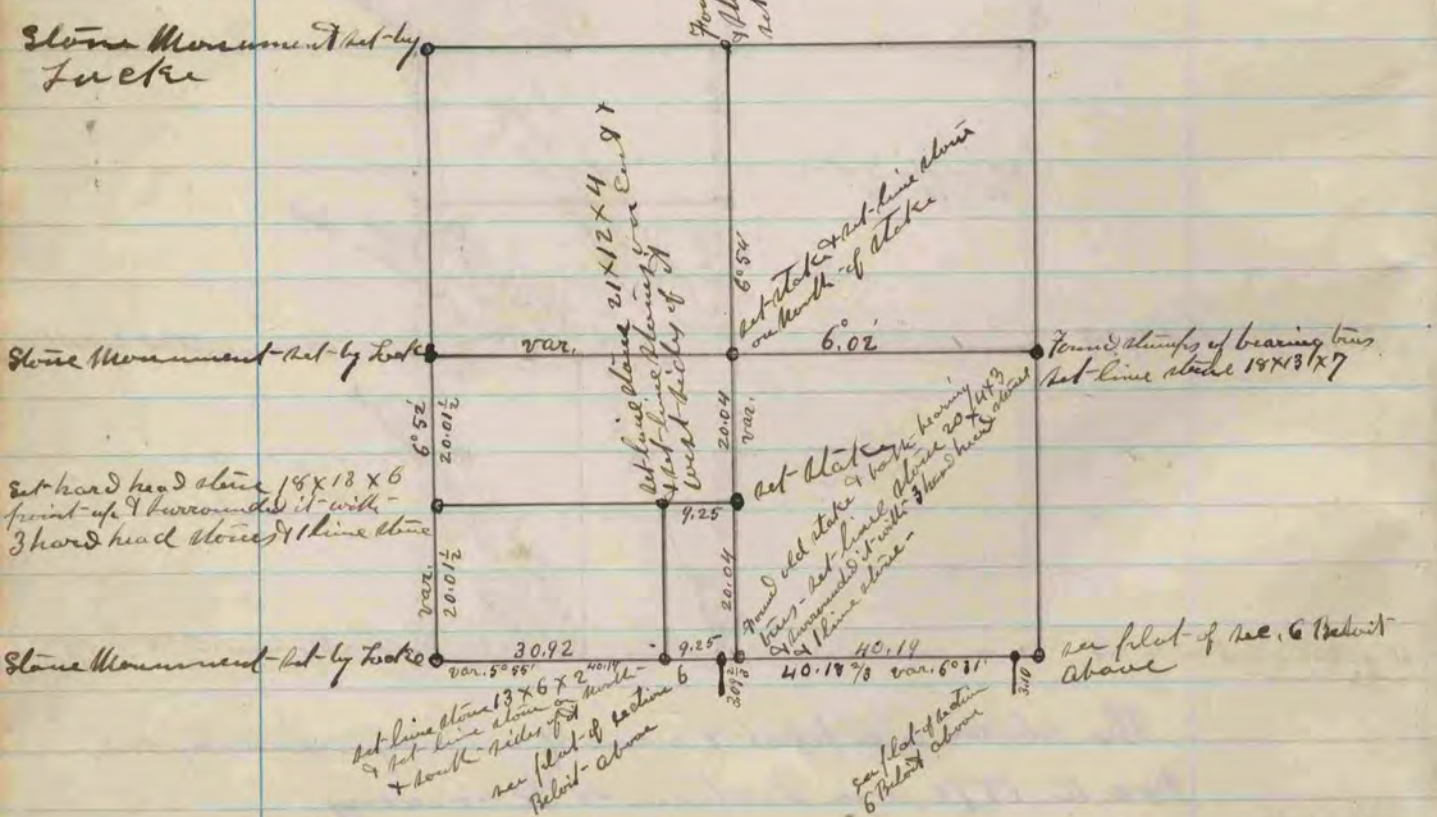 Stone Monument set by
Locke
Fou
set
set line stone 21 X 12 X 4
& set line stones on East &
West sides of it
6°54'
set stake & set line stone
on North of stake
Stone Monument set by Locke
var.
6°02'
Found stumps of bearing trees
set lime stone 18X13X7
6°52'
20.01½
20.04
var.
Set hard head stone 18 X 18 X 6
point up & surrounded it with
3 hard head stones & 1 lime stone
9.25
set stake
Found old stake & both bearing
trees - set lime stone 20X4X3
& surrounded it with 3 hard head stones
& 1 lime stone -
var.
20.01½
20.04
Stone Monument set by Locke
30.92
9.25
40.19
var. 5°55'
40.19
6
3.09⅔
40.18⅔ var. 6°31'
3.10
see plat of sec. 6 Beloit
above
set lime stone 13 X 6 X 2
& set lime stone on North
& south sides of it
see plat of section
Beloit above
see plat of section
6 Beloit above